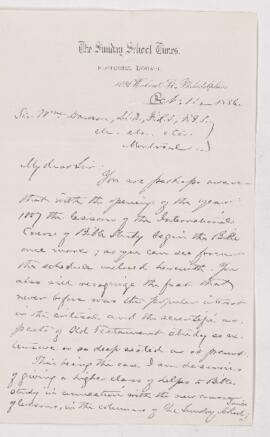 The Sunday School Times.
EDITORIAL ROOMS.
1031 Walnut St. Philadelphia
Oct. 1886.
Sir Wm Dawson, LL.D., F.R.S., F.G.S.,
etc. etc. etc.
Montreal.
My dear Sir:
You are perhaps aware
that with the opening of the year
1887 the lessons of the International
Course of Bible Study begin the Bible
once more; as you can see from
the schedule enclosed herewith. You
also will recognize the fact that
never before was the popular interest
in the critical and the scientific as-
pects of Old Testament study so ex-
tensive or so deep seated as at present.
This being the case, I am desirous
of giving a higher class of helps to Bible
study in connection with the new coming series
of lessons, in the columns of The Sunday School